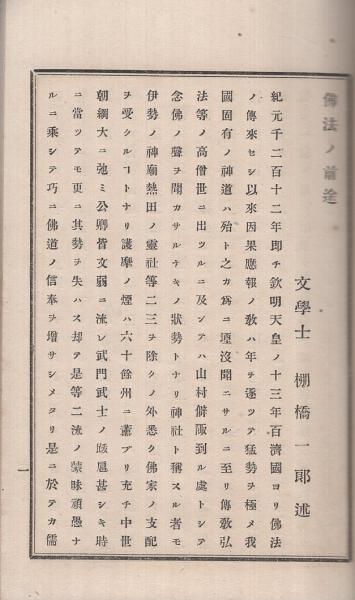 佛法ノ前途
文學士 棚橋一郎述
紀元千二百十二年即チ欽明天皇ノ十三年百濟國ヨリ佛法
ノ傳來セシ以來因果應報ノ敎ハ年ヲ逐ツテ猛勢ヲ極メ我
國固有ノ神道ハ殆ト之カ爲ニ堙沒聞ニサルニ至リ傳敎弘
法等ノ高僧世ニ出ツルニ及ンテハ山村僻陬到ル處トシテ
念佛ノ聲ヲ聞カサルナキノ狀勢トナリ神社ト稱スル者モ
伊勢ノ神廟熱田ノ靈社等二三ヲ除クノ外悉ク佛家ノ支配
ヲ受クルコトナリ護摩ノ煙ハ六十餘州ニ薰ブリ充チ中世
朝綱大ニ弛ミ公卿皆文弱ニ流レ武門武士ノ跋扈甚シキ時
ニ當ツテモ更ニ其勢ヲ失ハス却テ是等二流ノ蒙昧頑愚ナ
ルニ乘シテ巧ニ佛道ノ信奉ヲ增サシメタリ是ニ於テカ儒
一